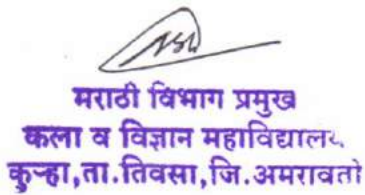 मराठी विभाग प्रमुख
कला व विज्ञान महाविद्यालय
कुऱ्हा,ता.तिवसा,जि.अमरावती